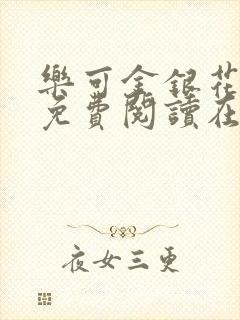 樂可金銀花
免費閱讀在
夜女三更